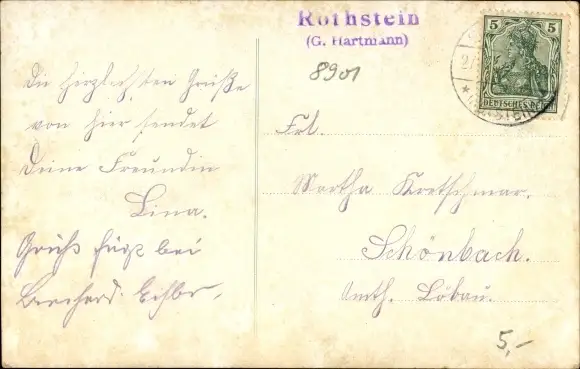 Die herzlichsten Grüße
von hier sendet
Deine Freundin
Lina.
Gruß fügt bei
Rothstein
(G. Hartmann)
8901
5 5
DEUTSCHES REICH
Frl.
Martha Kretschmar.
Schönbach.
Amth. Löbau.
5,-